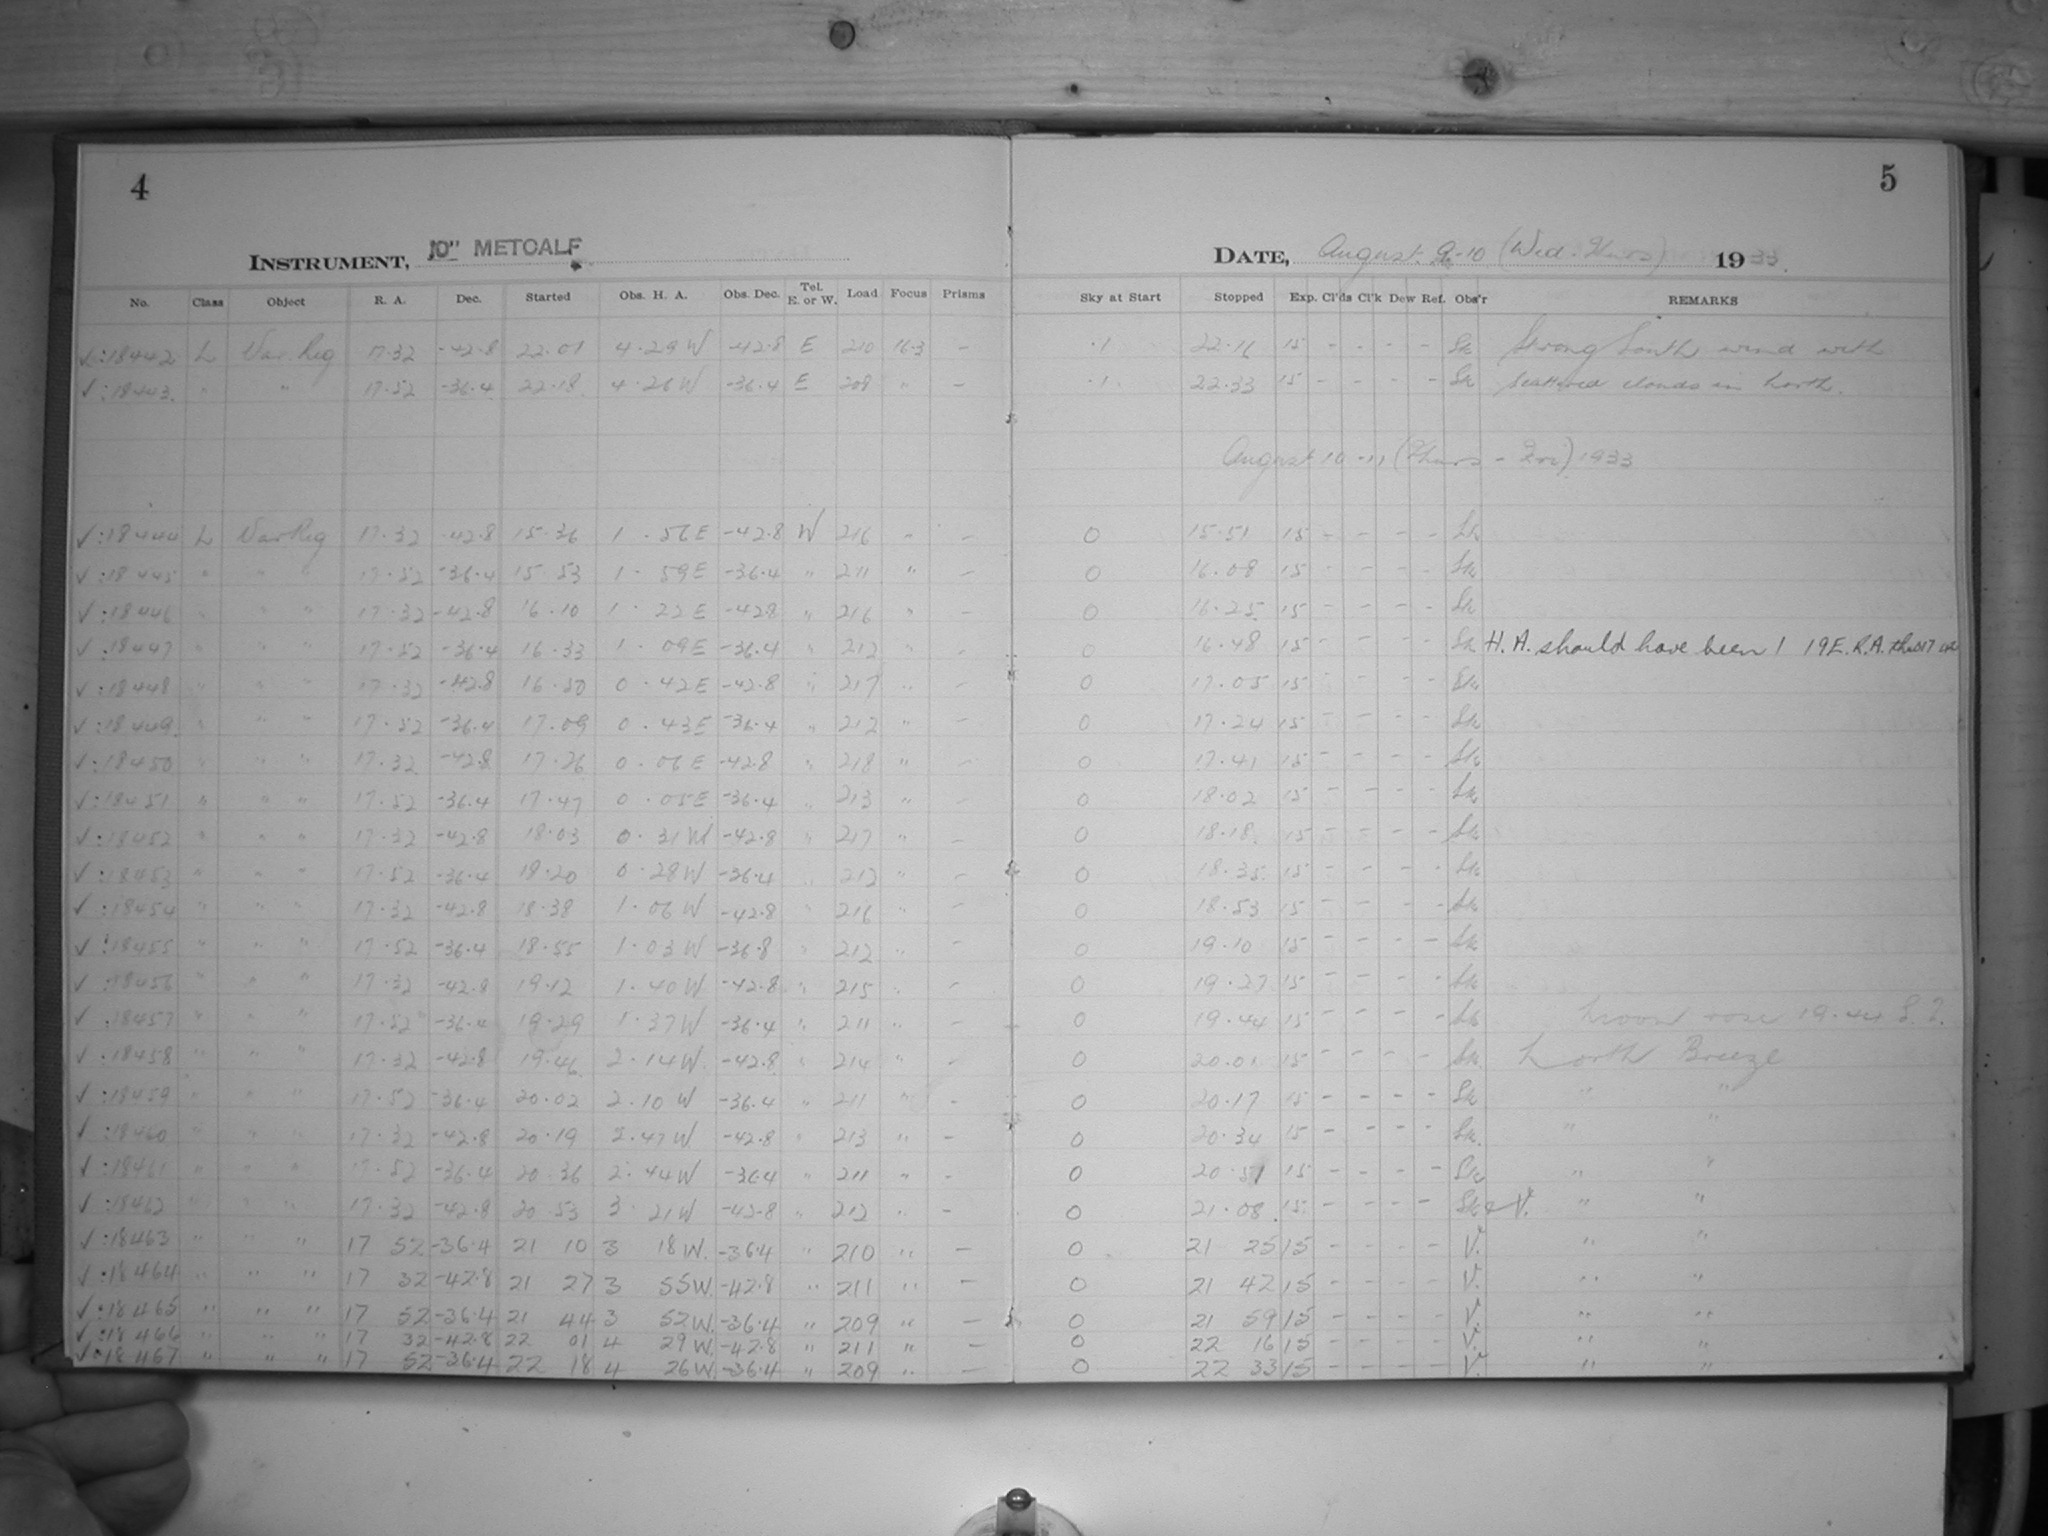 4
5
INSTRUMENT, 10" METCALF
DATE, August 9-10 (Wed-Thurs) 1933.
No. Class Object R. A. Dec. Started Obs. H. A. Obs. Dec. Tel. E. or W. Load Focus Prisms Sky at Start Stopped Exp. Cl'ds Cl'k Dew Ref. Obs'r REMARKS
✓:18442 L Var Reg 17.32 -42.8 22.01 4.29 W -42.8 E 210 16.3 - .1 22.16 15 - - - - Sk Strong South wind with
✓:18443. " " 17.52 -36.4 22.18 4.26 W -36.4 E 209 " - .1 22.33 15 - - - - Sk scattered clouds in north.
August 10-11 (Thurs - Fri) 1933
✓:18444 L Var Reg 17.32 -42.8 15.36 1.56 E -42.8 W 216 " - 0 15.51 15 - - - - Sk
✓:18445 " " " 17.52 -36.4 15.53 1.59 E -36.4 " 211 " - 0 16.08 15 - - - - Sk
✓:18446 " " " 17.32 -42.8 16.10 1.22 E -42.8 " 216 " - 0 16.25 15 - - - - Sk
✓:18447 " " " 17.52 -36.4 16.33 1.09 E -36.4 " 212 " - 0 16.48 15 - - - - Sk H. A. should have been 1 19 E. R.A. thus 17
✓:18448 " " " 17.32 -42.8 16.50 0.42 E -42.8 " 217 " - 0 17.05 15 - - - - Sk
✓:18449. " " " 17.52 -36.4 17.09 0.43 E -36.4 " 212 " - 0 17.24 15 - - - - Sk
✓:18450 " " " 17.32 -42.8 17.26 0.06 E -42.8 " 218 " - 0 17.41 15 - - - - Sk
✓:18451 " " " 17.52 -36.4 17.47 0.05 E -36.4 " 213 " - 0 18.02 15 - - - - Sk
✓:18452 " " " 17.32 -42.8 18.03 0.31 W -42.8 " 217 " - 0 18.18 15 - - - - Sk
✓:18453 " " " 17.52 -36.4 18.20 0.28 W -36.4 " 212 " - 0 18.35 15 - - - - Sk
✓:18454 " " " 17.32 -42.8 18.38 1.06 W -42.8 " 216 " - 0 18.53 15 - - - - Sk
✓:18455 " " " 17.52 -36.4 18.55 1.03 W -36.8 " 212 " - 0 19.10 15 - - - - Sk
✓:18456 " " " 17.32 -42.8 19.12 1.40 W -42.8 " 215 " - 0 19.27 15 - - - - Sk
✓:18457 " " " 17.52 -36.4 19.29 1.37 W -36.4 " 211 " - 0 19.44 15 - - - - Sk Moon rose 19.44 S.T.
✓:18458 " " " 17.32 -42.8 19.46 2.14 W. -42.8 " 214 " - 0 20.01 15 - - - - Sk North Breeze
✓:18459 " " " 17.52 -36.4 20.02 2.10 W -36.4 " 211 " - 0 20.17 15 - - - - Sk " "
✓:18460 " " " 17.32 -42.8 20.19 2.47 W -42.8 " 213 " - 0 20.34 15 - - - - Sk. " "
✓:18461 " " " 17.52 -36.4 20.36 2.44 W -36.4 " 211 " - 0 20.51 15 - - - - Sk " "
✓:18462 " " " 17.32 -42.8 20.53 3.21 W -42.8 " 212 " - 0 21.08 15 - - - - Sk & V. " "
✓:18463 " " " 17 52 -36.4 21 10 3 18 W. -36.4 " 210 " - 0 21 25 15 - - - - V. " "
✓:18464 " " " 17 32 -42.8 21 27 3 55 W. -42.8 " 211 " - 0 21 42 15 - - - - V. " "
✓:18465 " " " 17 52 -36.4 21 44 3 52 W. -36.4 " 209 " - 0 21 59 15 - - - - V. " "
✓:18466 " " " 17 32 -42.8 22 01 4 29 W. -42.8 " 211 " - 0 22 16 15 - - - - V. " "
✓:18467 " " " 17 52 -36.4 22 18 4 26 W. -36.4 " 209 " - 0 22 33 15 - - - - V. " "